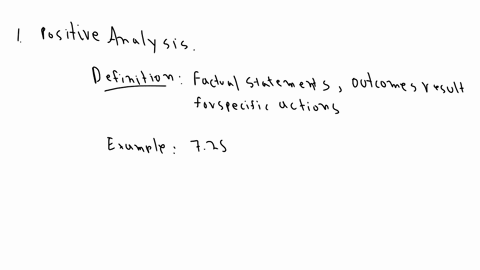 1. Positive Analysis.
Definition: Factual statements, outcomes result
for specific actions
Example: 7.25